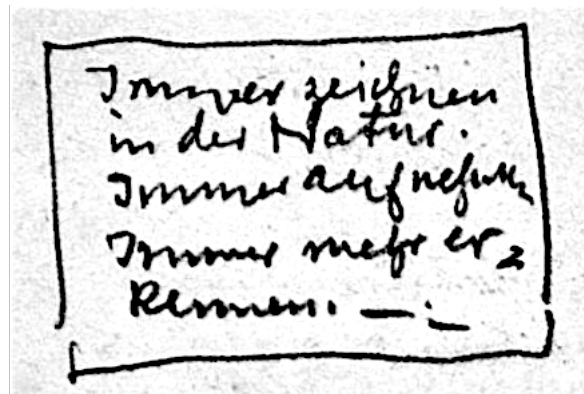 Immer zeichnen
in der Natur.
Immer aufnehmen
Immer mehr er=
kennen. — . —